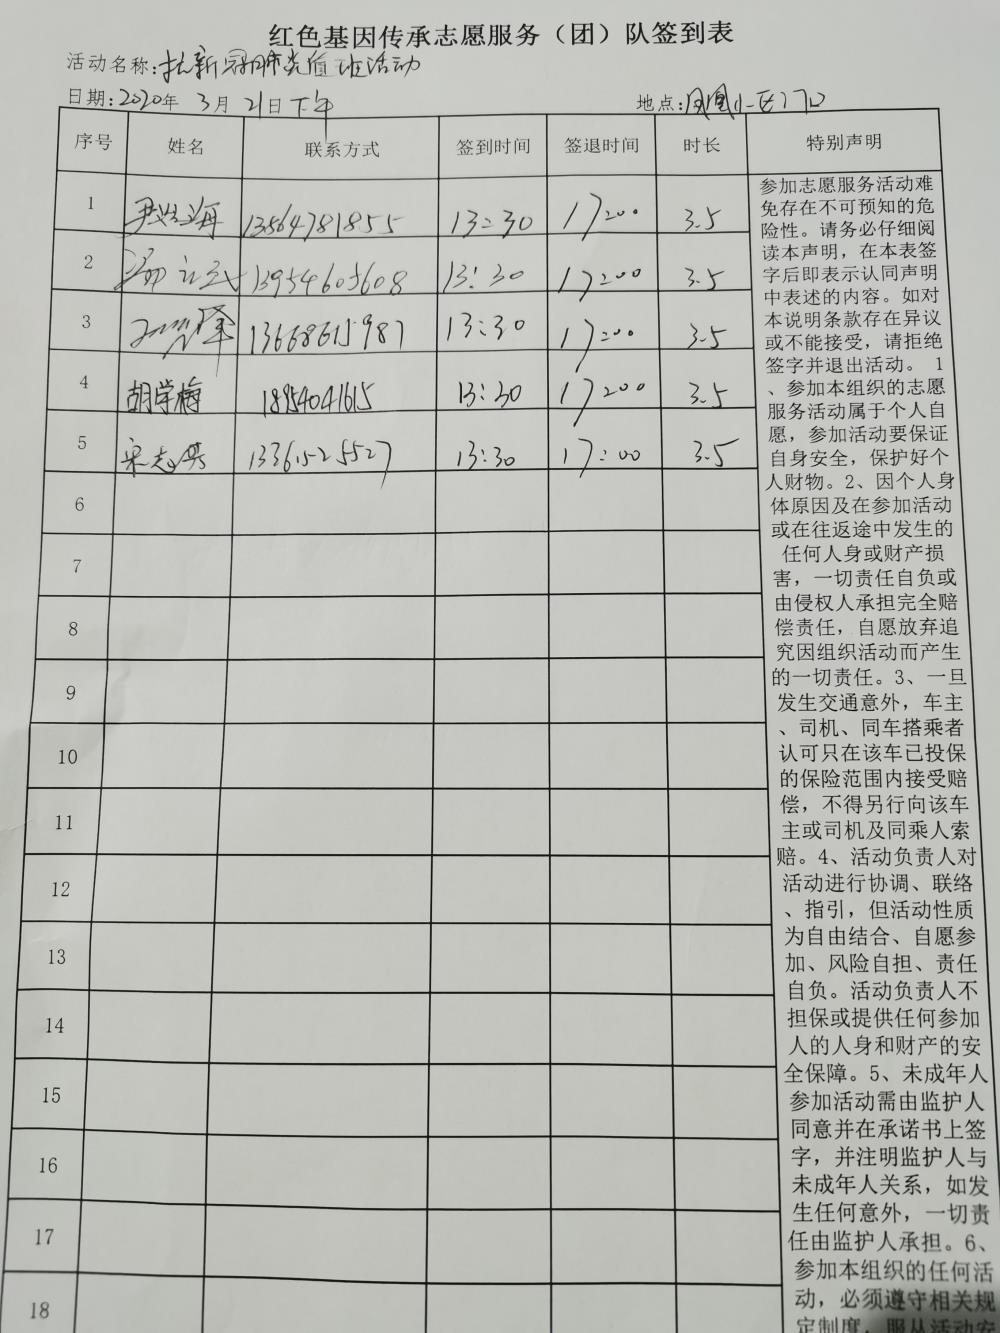 红色基因传承志愿服务（团）队签到表
活动名称:抗新冠肺炎值班活动
日期:2020年 3月 21日下午 地点:凤凰小区门口
序号 姓名 联系方式 签到时间 签退时间 时长 特别声明
1 13564781855 13:30 17:00 3.5
2 13954605608 13:30 17:00 3.5
3 13:30 17:00 3.5
4 胡学梅 18954041615 13:30 17:00 3.5
5 宋志英 13361525527 13:30 17:00 3.5
6
7
8
9
10
11
12
13
14
15
16
17
18
参加志愿服务活动难
免存在不可预知的危
险性。请务必仔细阅
读本声明，在本表签
字后即表示认同声明
中表述的内容。如对
本说明条款存在异议
或不能接受，请拒绝
签字并退出活动。 1
、参加本组织的志愿
服务活动属于个人自
愿，参加活动要保证
自身安全，保护好个
人财物。2、因个人身
体原因及在参加活动
或在往返途中发生的
任何人身或财产损
害，一切责任自负或
由侵权人承担完全赔
偿责任，自愿放弃追
究因组织活动而产生
的一切责任。3、一旦
发生交通意外，车主
、司机、同车搭乘者
认可只在该车已投保
的保险范围内接受赔
偿，不得另行向该车
主或司机及同乘人索
赔。4、活动负责人对
活动进行协调、联络
、指引，但活动性质
为自由结合、自愿参
加、风险自担、责任
自负。活动负责人不
担保或提供任何参加
人的人身和财产的安
全保障。5、未成年人
参加活动需由监护人
同意并在承诺书上签
字，并注明监护人与
未成年人关系，如发
生任何意外，一切责
任由监护人承担。6、
参加本组织的任何活
动，必须遵守相关规
定制度，服从活动安